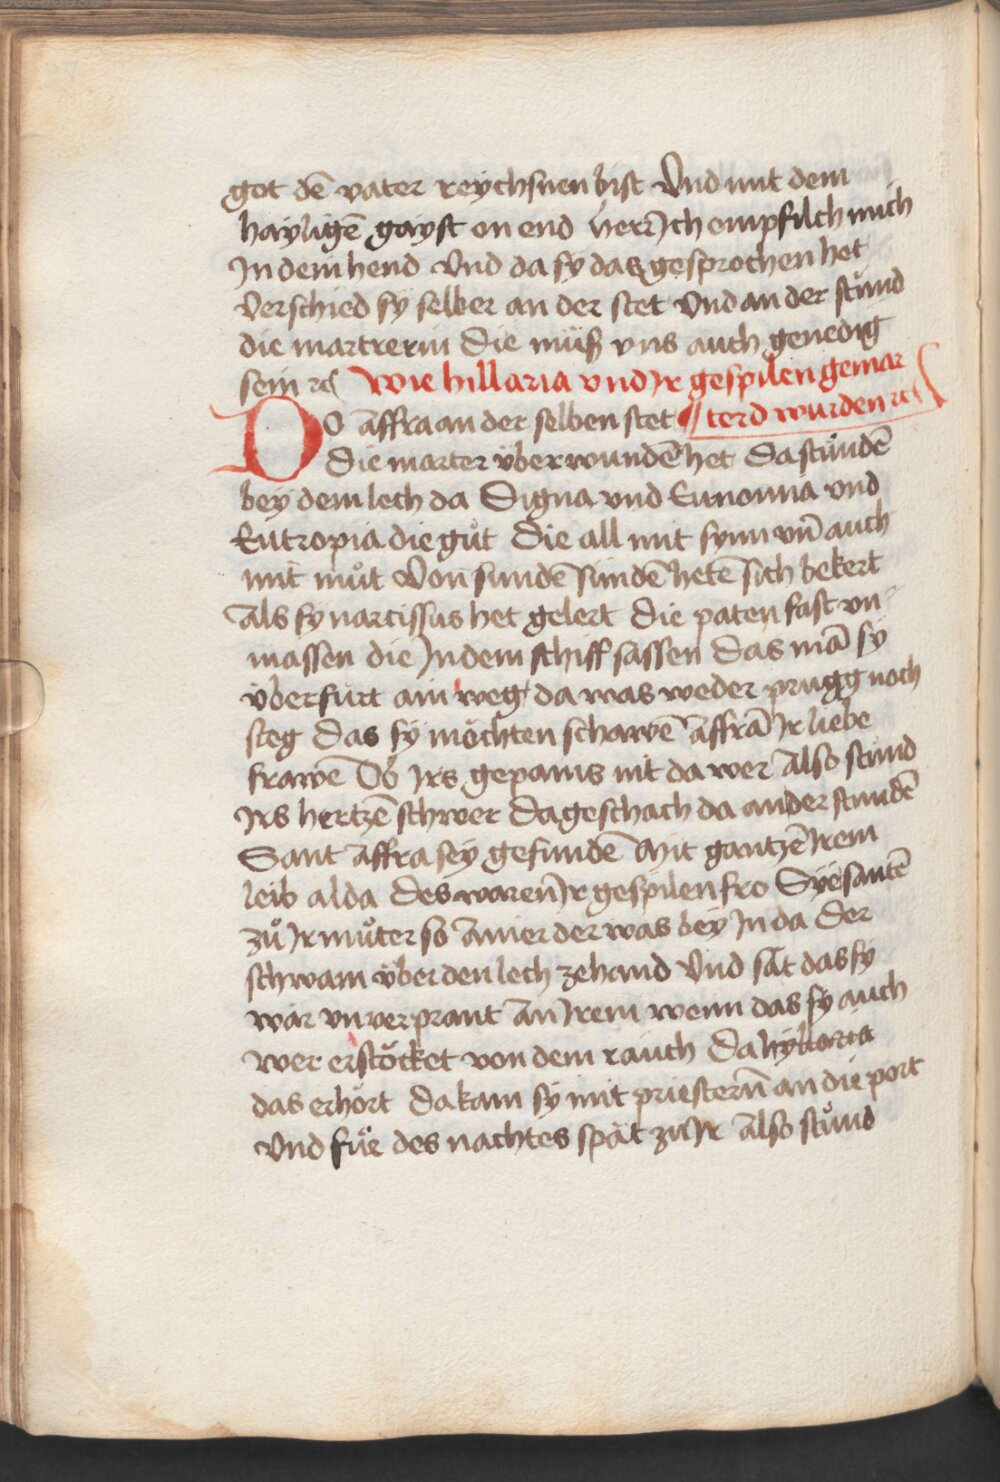 got dē vater reychsnen bist Vnd mit dem
hayligē gayst on end herr Ich empfilch mich
In dein hend vnd da sy das gesprochen het
verschied sy selber an der stet vnd an der stund
die martrerin die müß vns auch genedig
sein ⁊c Wie hillaria vnd Ir gespilen gemar
DO affra an der selben stet terd wurden ⁊c
Die marter überwundē het Da stůndē
bey dem lech da Digna vnd Eunomia vnd
Eutropia die gůt Die all mit synn vn̄ auch
mit můt von sundē sundē hetē sich bekert
als sy narcissus het gelert Die paten fast vn
massen die In dem schiff sassen Das mā sy
überfürt ain weg da was weder prugg noch
steg Das sy möchten schawē affrā Ir liebe
frawē Ob Irs gepains nit da wer Also stůnd
Irs hertzē schwer Da geschach da an der stundē
Sant affra sey gefundē Mit gantzē Irem
leib alda Des waren Ir gespilen fro Sye santē
zů Ir můter so Ainer der was bey In da Der
schwam über den lech zehand Vnd sāt das sy
wär vnverprant An Irem wenn das sy auch
wer erstöcket von dem rauch Da hylaria
das erhort Da kam sy mit priestern̄ an die port
Vnd für des nachtes spät zu Ir Also stůnd